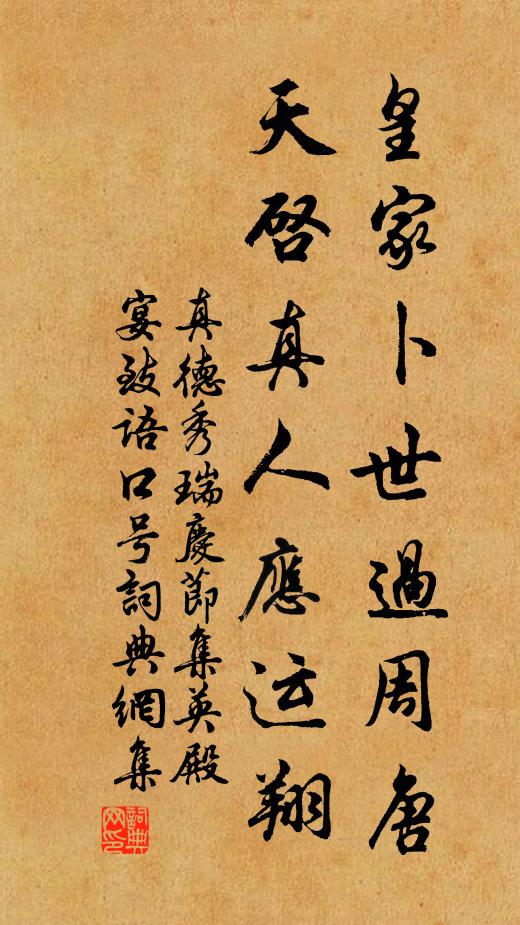 皇家卜世過周唐
天啓真人應运翔
真德秀瑞慶節集英殿
宴致语口号詞典網集
詞典网印